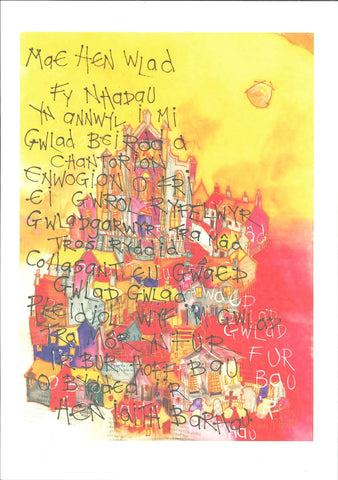 Mae Hen Wlad
Fy Nhadau
Yn annwyl i mi
Gwlad Beirdd a
Chantorion
Enwogion o fri
Ei Gwrol Ryfelwyr
Gwladgarwyr Tra Mâd
Tros Ryddid
Collasant Eu Gwaed
Gwlad Gwlad
Pleidiol Wyf i'm Gwlad
Tra Môr a Fur
I'r Bur Hoff Bau
O Bydded i'r
Hen Iaith Barhau
Gwlad
Fur
Bau